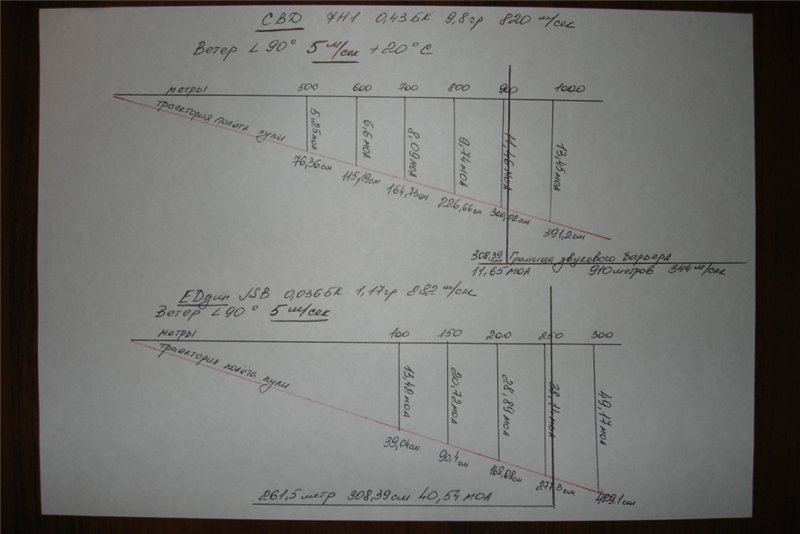 СВД 7Н1 0,43БК 9,8гр 820 м/сек
Ветер L 90° 5 м/сек +20°С
метры 500 600 700 800 900 1000
траектория полёта пули
5,25МОА 6.6МОА 8,09МОА 9,74МОА 11,46МОА 13,45МОА
76,36см 115,19см 164,73см 226,66см 300,02см 391,2см
308,39 см Граница звукового барьера
11,65 МОА 910метров 344м/сек
EDган JSB 0,036БК 1,17гр 282 м/сек
Ветер L90° 5 м/сек
метры 100 150 200 250 300
траектория полёта пули
13,42МОА 20,72МОА 28,89МОА 49,17МОА
39,04см 90,4см 168,08см 277,3см 429,1см
261,5метр 308,39см 40,54 МОА